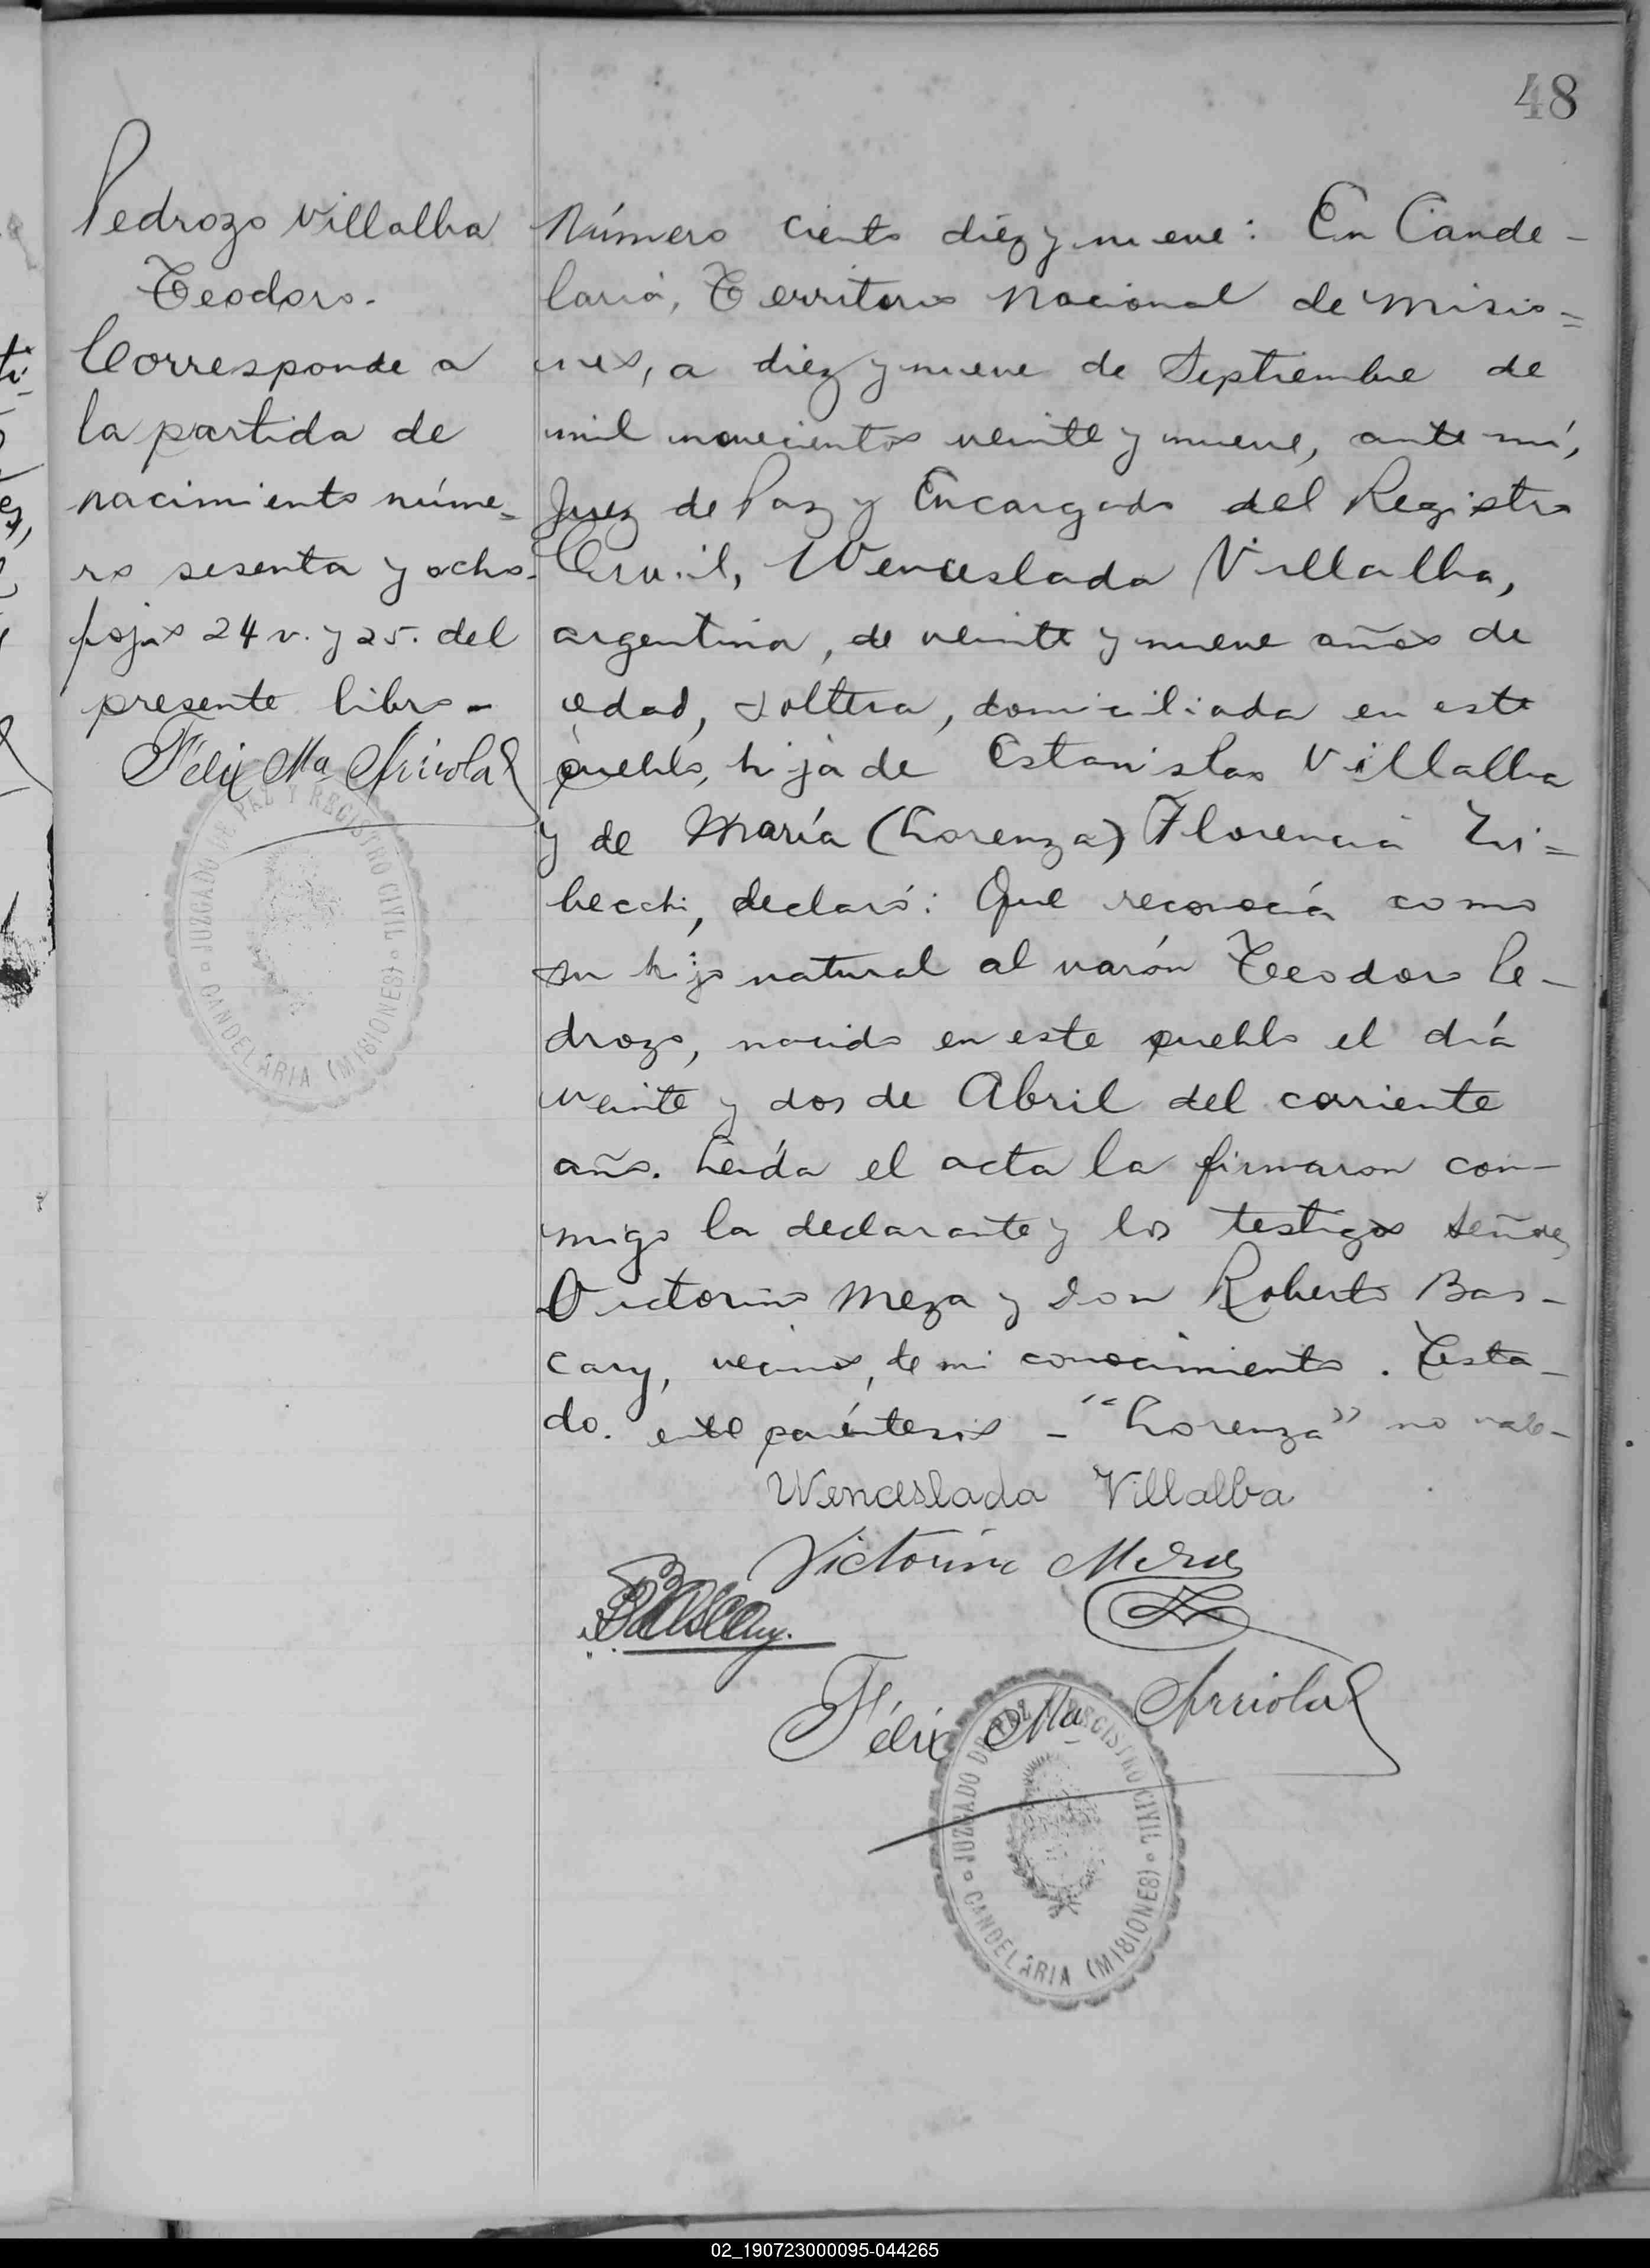 48
Pedrozo Villalba
Teodoro.
Corresponde a
la partida de
nacimiento núme=
ro sesenta y ocho.
fojas 24 v. y 25. del
presente libro -
Félix Ma Arriola
JUZGADO DE PAZ Y REGISTRO CIVIL
CANDELARIA (MISIONES)
Número ciento diez y nueve: En Cande-
laria, Territorio Nacional de Misio=
nes, a diez y nueve de Septiembre de
mil novecientos veinte y nueve, ante mí,
Juez de Paz y Encargado del Registro
Civil, Wenceslada Villalba,
argentina, de veinte y nueve años de
edad, soltera, domiciliada en este
pueblo, hija de Estanislao Villalba
y de María (Lorenza) Florencia
declaró: Que reconocía como
su hijo natural al varón Teodoro Pe-
drozo, nacido en este pueblo el día
veinte y dos de Abril del corriente
año. Leída el acta la firmaron con-
migo la declarante y los testigos señores
Victorino Meza y don Roberto Bas-
cary, vecinos, de mi conocimiento. Testa-
do. entre paréntesis - "Lorenza" no vale-
Wenceslada Villalba
Victorino Meza
Bascary.
Félix Ma Arriola
JUZGADO DE PAZ Y REGISTRO CIVIL
CANDELARIA (MISIONES)
02_190723000095-044265